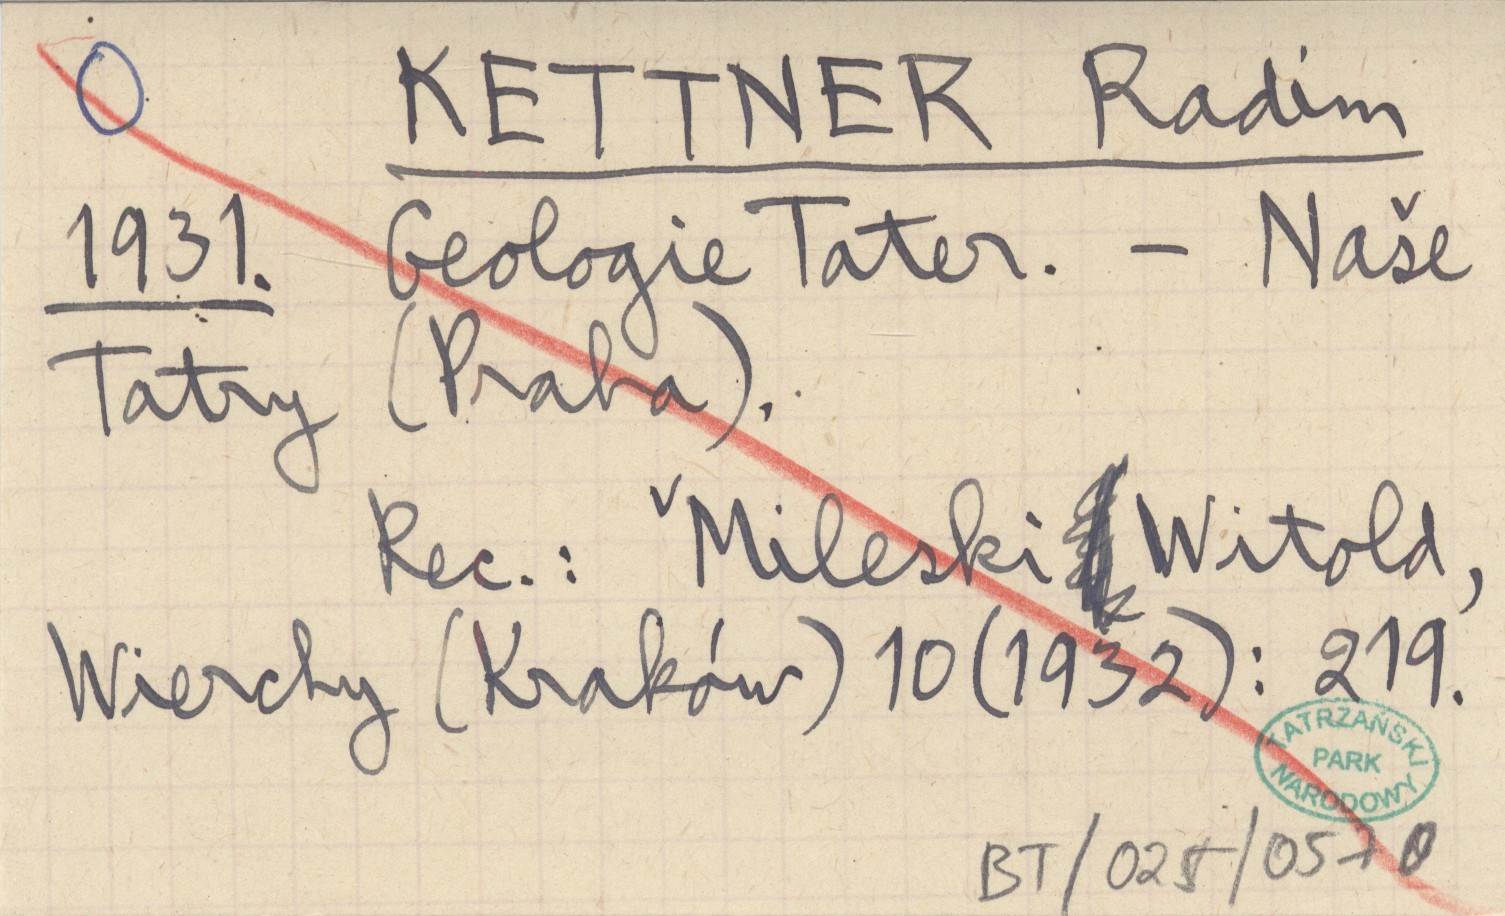 KETTNER Radim
1931. Geologie Tater. — Naše
Tatry (Praha).
Rec.: Mileski Witold,
Wierchy (Kraków) 10(1932): 219.
TATRZAŃSKI
PARK
NARODOWY
BT/025/0570